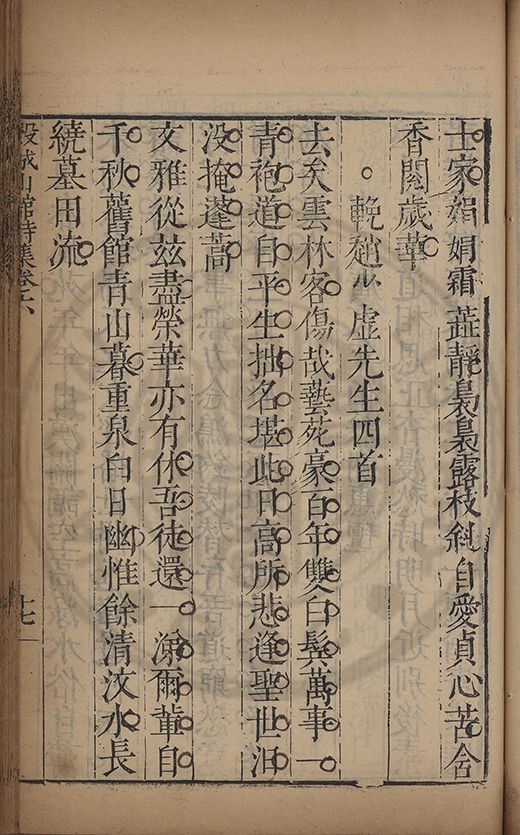 士家娟娟霜蕋靜裊裊露枝斜自愛貞心苦含
香閱歲華
輓趙少虚先生四首
去矣雲林客傷哉藝苑豪百年雙白鬂萬事一
青袍道自平生拙名堪此日高所悲逢聖世汨
没掩蓬蒿
文雅從兹盡榮華亦有休吾徒還一洒爾軰自
千秋舊館青山暮重泉白日幽惟餘清汶水長
繞墓田流
穀城山館詩集卷六
十七